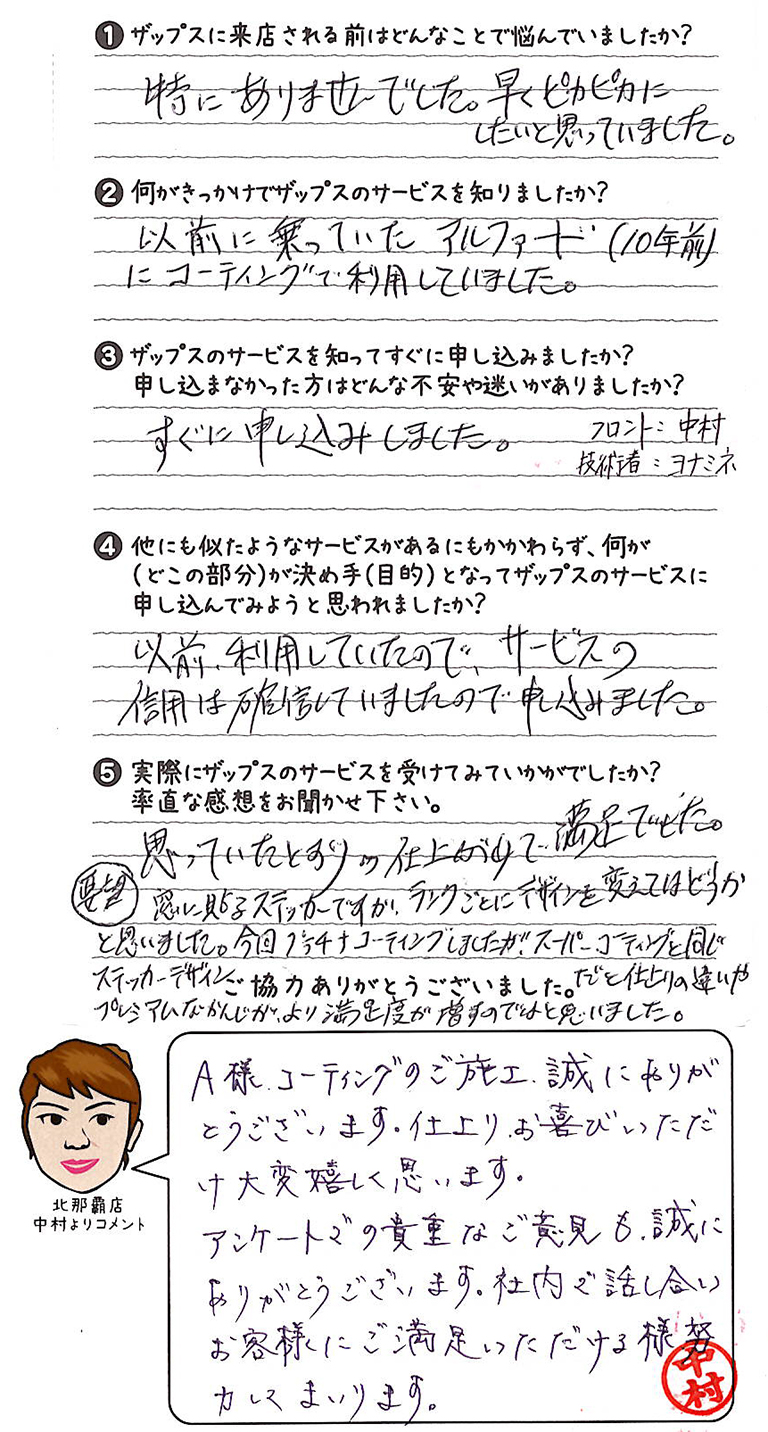 ❶ ザップスに来店される前はどんなことで悩んでいましたか？
特にありませんでした。早くピカピカに
したいと思っていました。
❷ 何がきっかけでザップスのサービスを知りましたか？
以前に乗っていた アルファード (10年前)
に コーティングで利用していました。
❸ ザップスのサービスを知ってすぐに申し込みましたか？
申し込まなかった方はどんな不安や迷いがありましたか？
すぐに申し込みしました。
フロント：中村
技術者：ヨナミネ
❹ 他にも似たようなサービスがあるにもかかわらず、何が
（どこの部分）が決め手（目的）となってザップスのサービスに
申し込んでみようと思われましたか？
以前、利用していたので、サービスの
信用は確信していましたので申し込みました。
❺ 実際にザップスのサービスを受けてみていかがでしたか？
率直な感想をお聞かせ下さい。
思っていたとおりの仕上がりで満足でした。
要望 窓に貼るステッカーですが、ランクごとにデザインを変えてはどうか
と思いました。今回プラチナコーティングしましたが、スーパーコーティングと同じ
ステッカーデザイン だと仕上りの違いや
ご協力ありがとうございました。
プレミアムなかんじが、より満足度が増すのではと思いました。
A様、コーティングのご施工、誠にありが
とうございます。仕上り、お喜びいただ
け大変嬉しく思います。
アンケートでの貴重なご意見も、誠に
ありがとうございます。社内で話し合い
お客様にご満足いただける様努
力してまいります。
中村
北那覇店
中村よりコメント